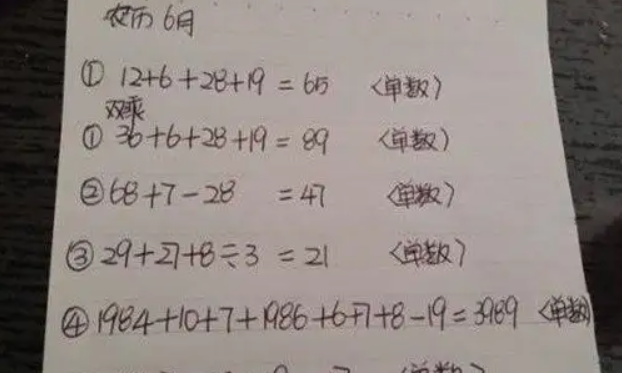 农历 6月
① 12+6+28+19 = 65 〈单数〉
双乘
① 36+6+28+19 = 89 〈单数〉
② 68+7-28 = 47 〈单数〉
③ 29+27+8÷3 = 21 〈单数〉
④ 1984+10+7+1986+6+7+8-19=3989 〈单数〉